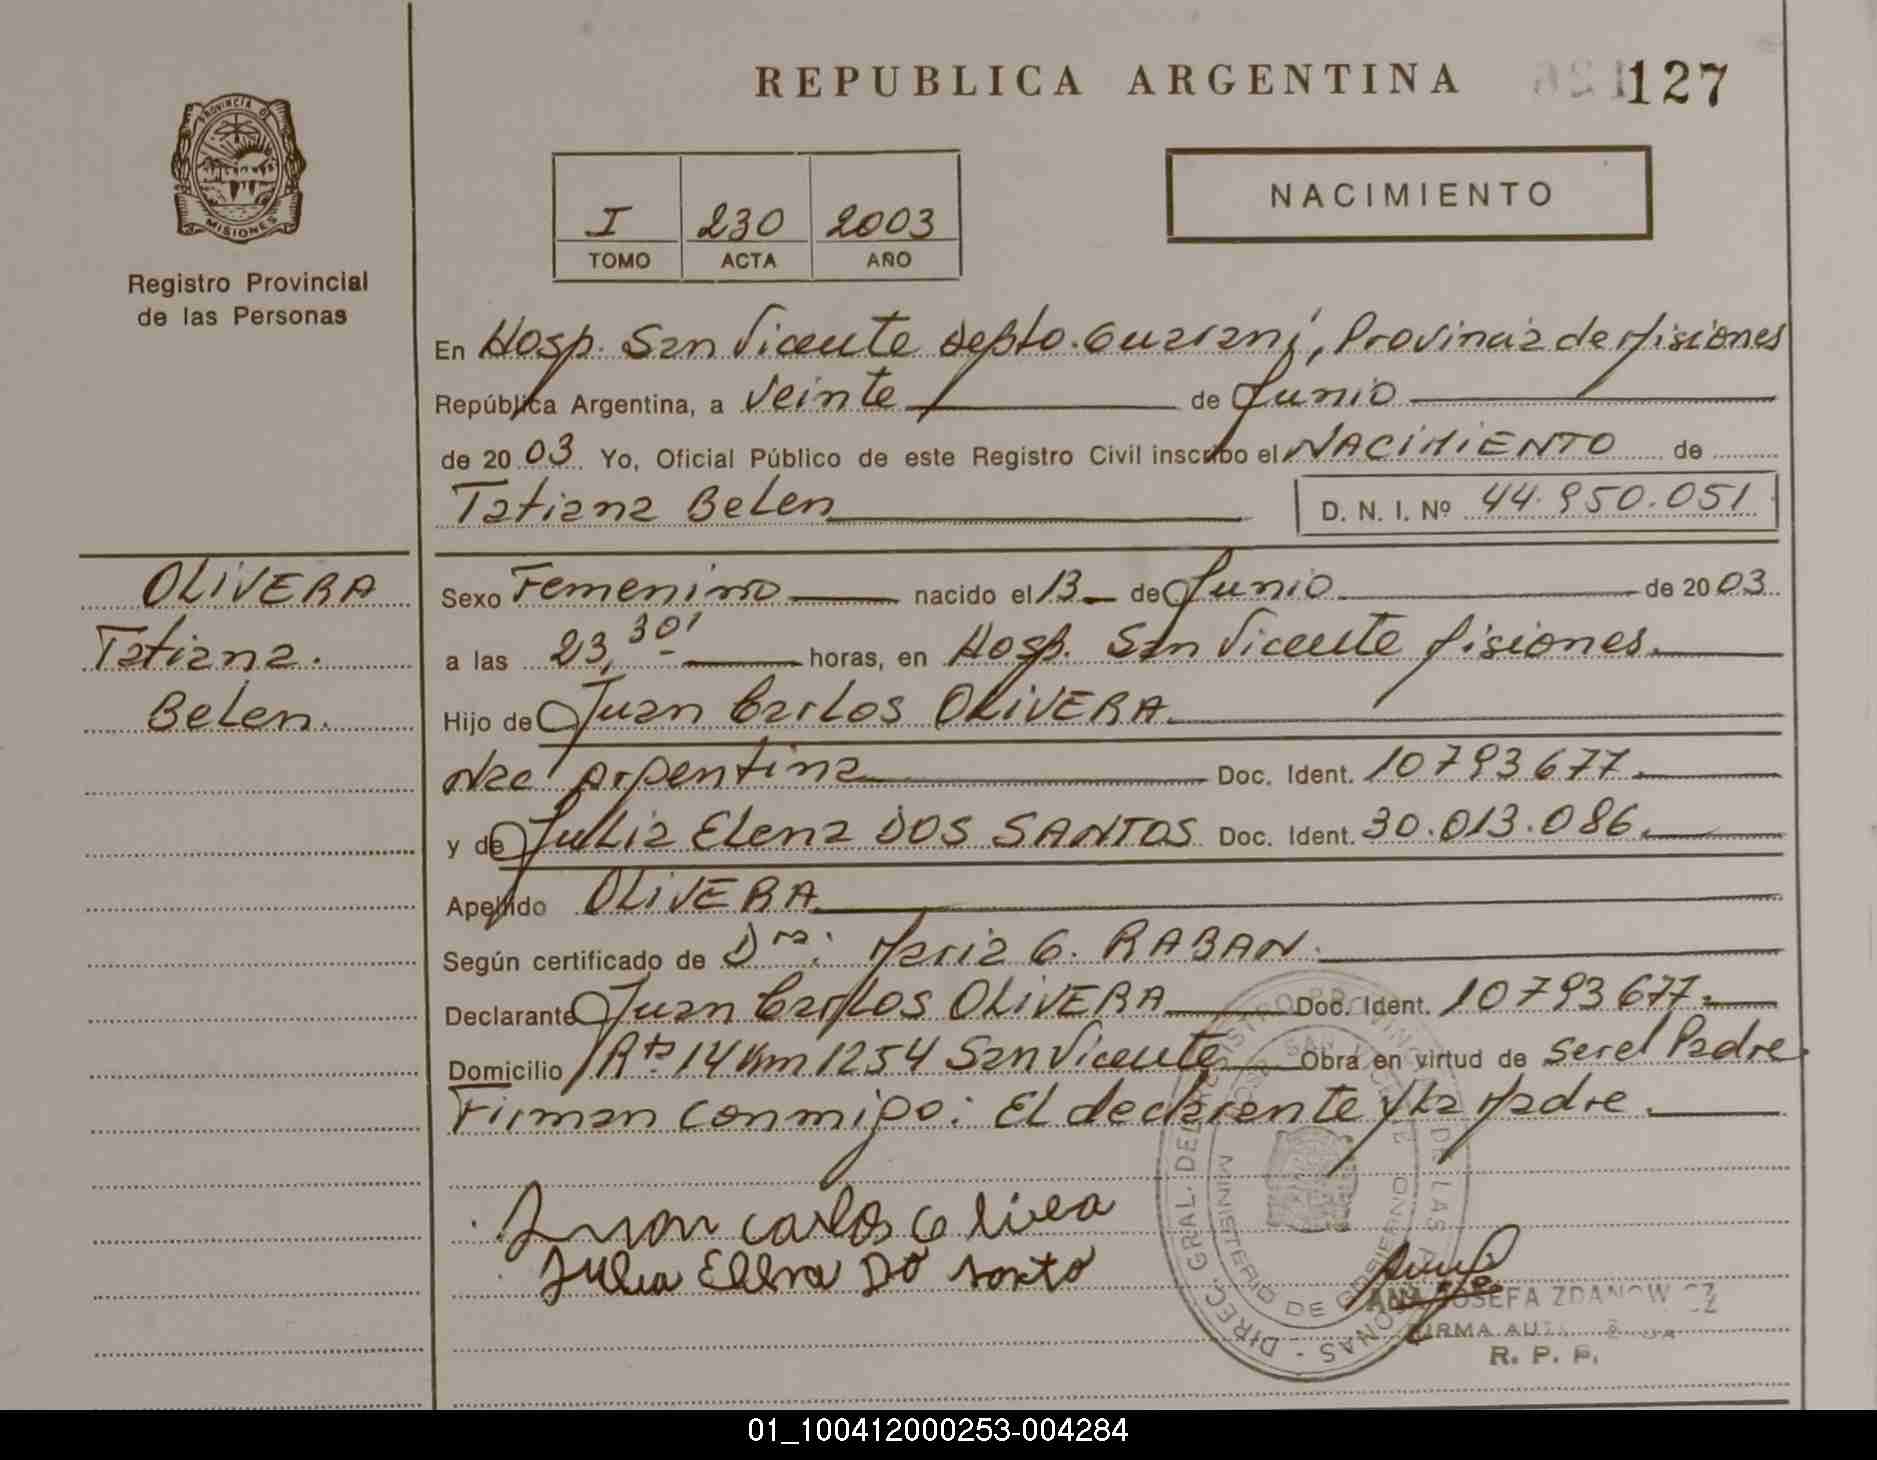 REPUBLICA ARGENTINA 127
PROVINCIA DE
MISIONES
Registro Provincial
de las Personas
I 230 2003
TOMO ACTA AÑO
NACIMIENTO
En Hosp. San Vicente Depto. Guaraní, Provincia de Misiones
República Argentina, a veinte de Junio
de 2003 Yo, Oficial Público de este Registro Civil inscribo el NACIMIENTO de
Tatiana Belen
D. N. I. Nº 44.950.051
OLIVERA
Tatiana.
Belen.
Sexo Femenino nacido el 13 de Junio de 2003
a las 23,30' horas, en Hosp. San Vicente Misiones.
Hijo de Juan Carlos OLIVERA
Nac Argentina Doc. Ident. 10793677
y de Julia Elena DOS SANTOS Doc. Ident. 30.013.086
Apellido OLIVERA
Según certificado de Dra: Maria G. RABAN.
Declarante Juan Carlos OLIVERA Doc. Ident. 10793677
Domicilio Rta. 14 Km 1254 San Vicente Obra en virtud de ser el Padre.
Firman conmigo: El declarante y la Madre.
Juan Carlos Olivea
Julia Elena Do santo
DIREC. GRAL. DEL REGISTRO PROVINCIAL DE LAS PERSONAS
MINISTERIO DE GOBIERNO
SAN VICENTE
ANA JOSEFA ZDANOWICZ
FIRMA
R. P. P.
01_100412000253-004284